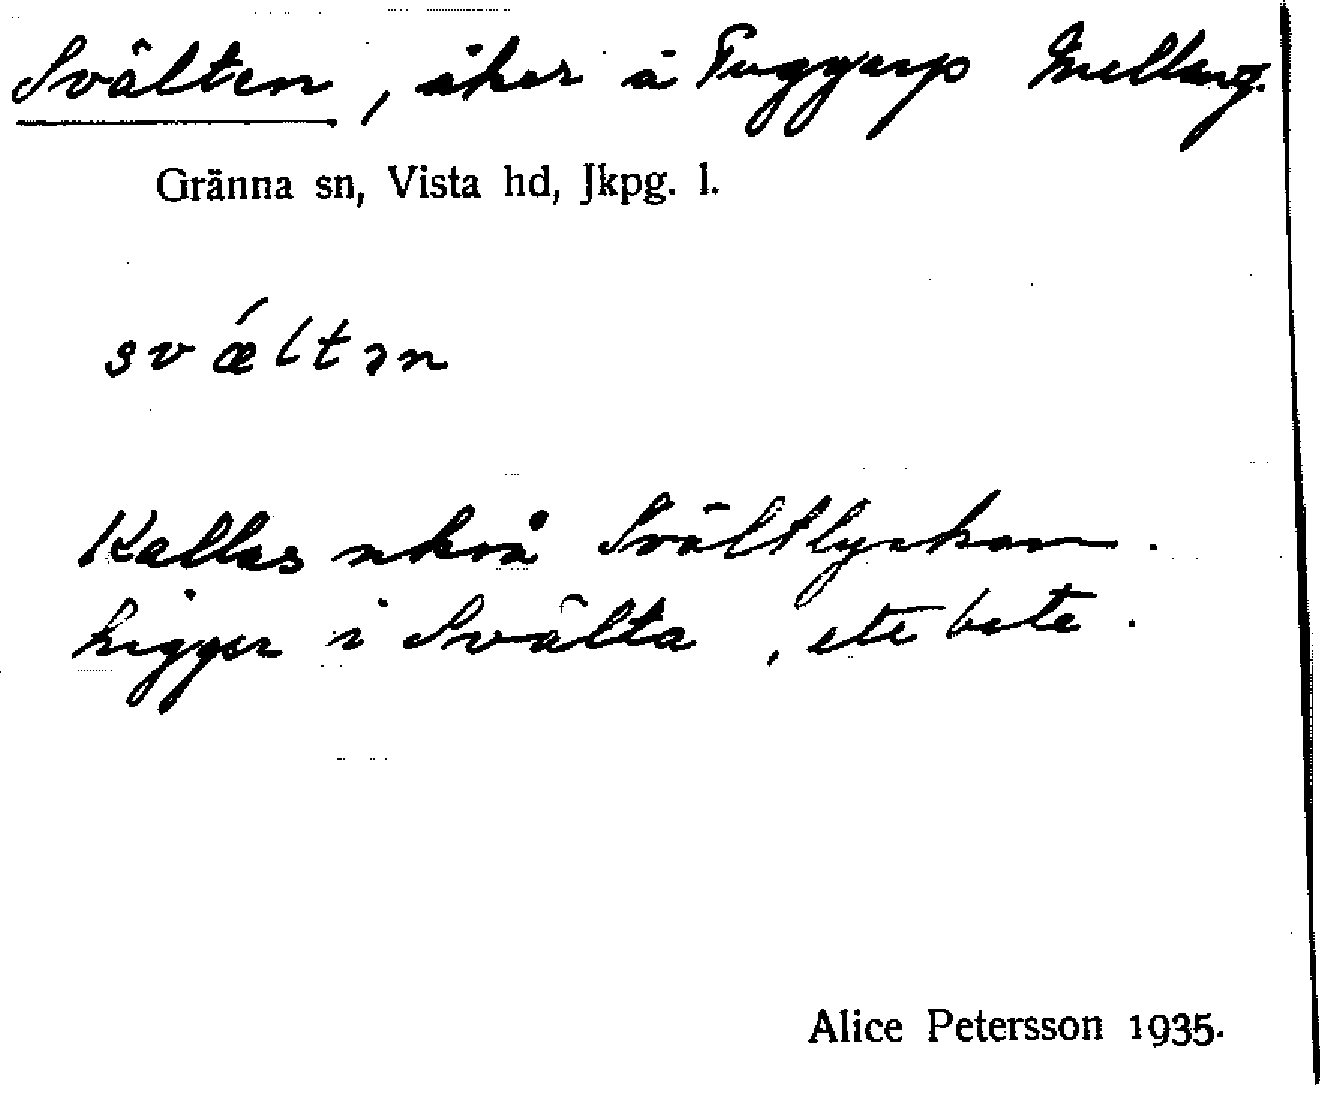 Svälten, åker å Tuggarp Mellang.
Gränna sn, Vista hd, Jkpg. l.
svǽltən
Kallas också Svältlyckan.
Ligger i Svälta, ett bete.
Alice Petersson 1935.